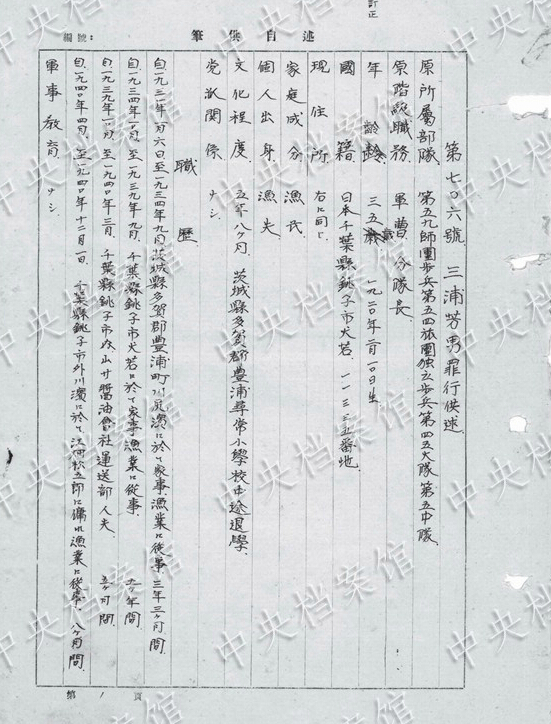 訂正
述自供筆
編號:
第七〇六號 三浦芳男罪行供述
原所屬部隊 第五九師團歩兵第五四旅團独立歩兵第四五大隊 第五中隊
原階級職務 軍曹 分隊長
年齡 三五歳 一九二〇年二月一〇日生
國籍 日本千葉縣銚子市犬若 一一三三五番地
現住所 右に同じ
家庭成分 漁民
個人出身 漁夫
文化程度 五年八ヶ月 茨城縣多賀郡豊浦尋常小學校中途退學
党派関係 ナシ
職歴
自一九三一年 月六日至一九三四年九月 茨城縣多賀郡豊浦町川尻濱に於て家事漁業に從事 三年三ヶ月間
自一九三四年 月 至一九三九年九月 千葉縣銚子市犬若に於て家事漁業に從事 年間
自一九三九年 月 至一九四〇年三月 千葉縣銚子市 醤油會社運送部人夫 五ヶ月間
自一九四〇年四月 至一九四〇年十二月一日 千葉縣銚子市外川濱に於て 松五郎に傭れ漁業に從事 八ヶ月間
軍事教育 ナシ
第 1 頁
中央档案馆